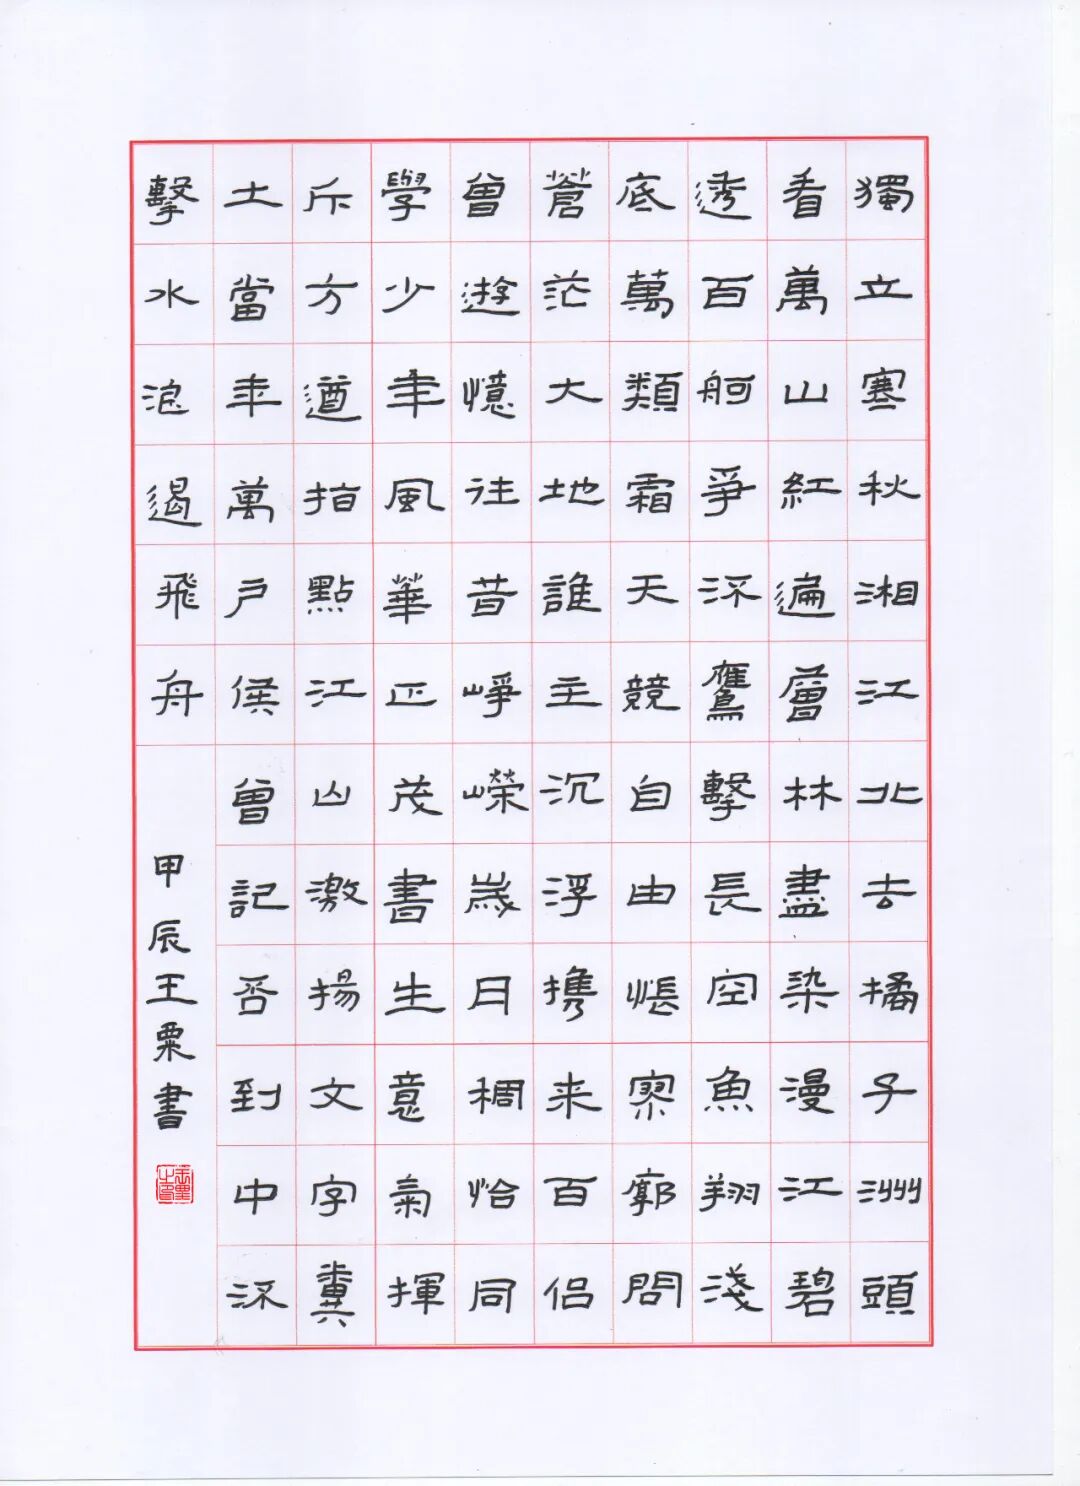 獨立寒秋湘江北去橘子洲頭
看萬山紅遍層林盡染漫江碧
透百舸爭流鷹擊長空魚翔淺
底萬類霜天競自由悵寥廓問
蒼茫大地誰主沉浮携来百侣
曾遊憶往昔崢嶸歲月稠恰同
學少年風華正茂書生意氣揮
斥方遒指點江山激揚文字糞
土當年萬户侯曾記否到中流
擊水浪遏飛舟
甲辰王粟書